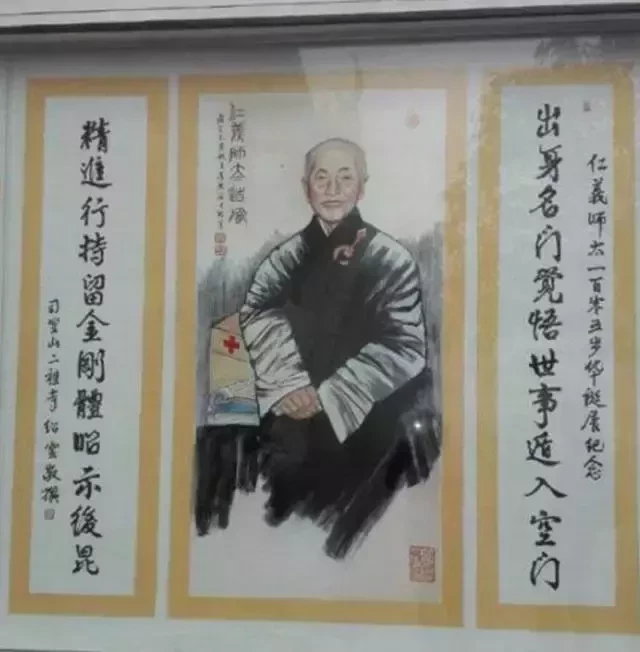 仁義师太一百零五岁华诞辰纪念
出身名门覺悟世事遁入空门
仁義师太德像
精進行持留金剛體昭示後昆
司空山二祖寺绍雲敬撰